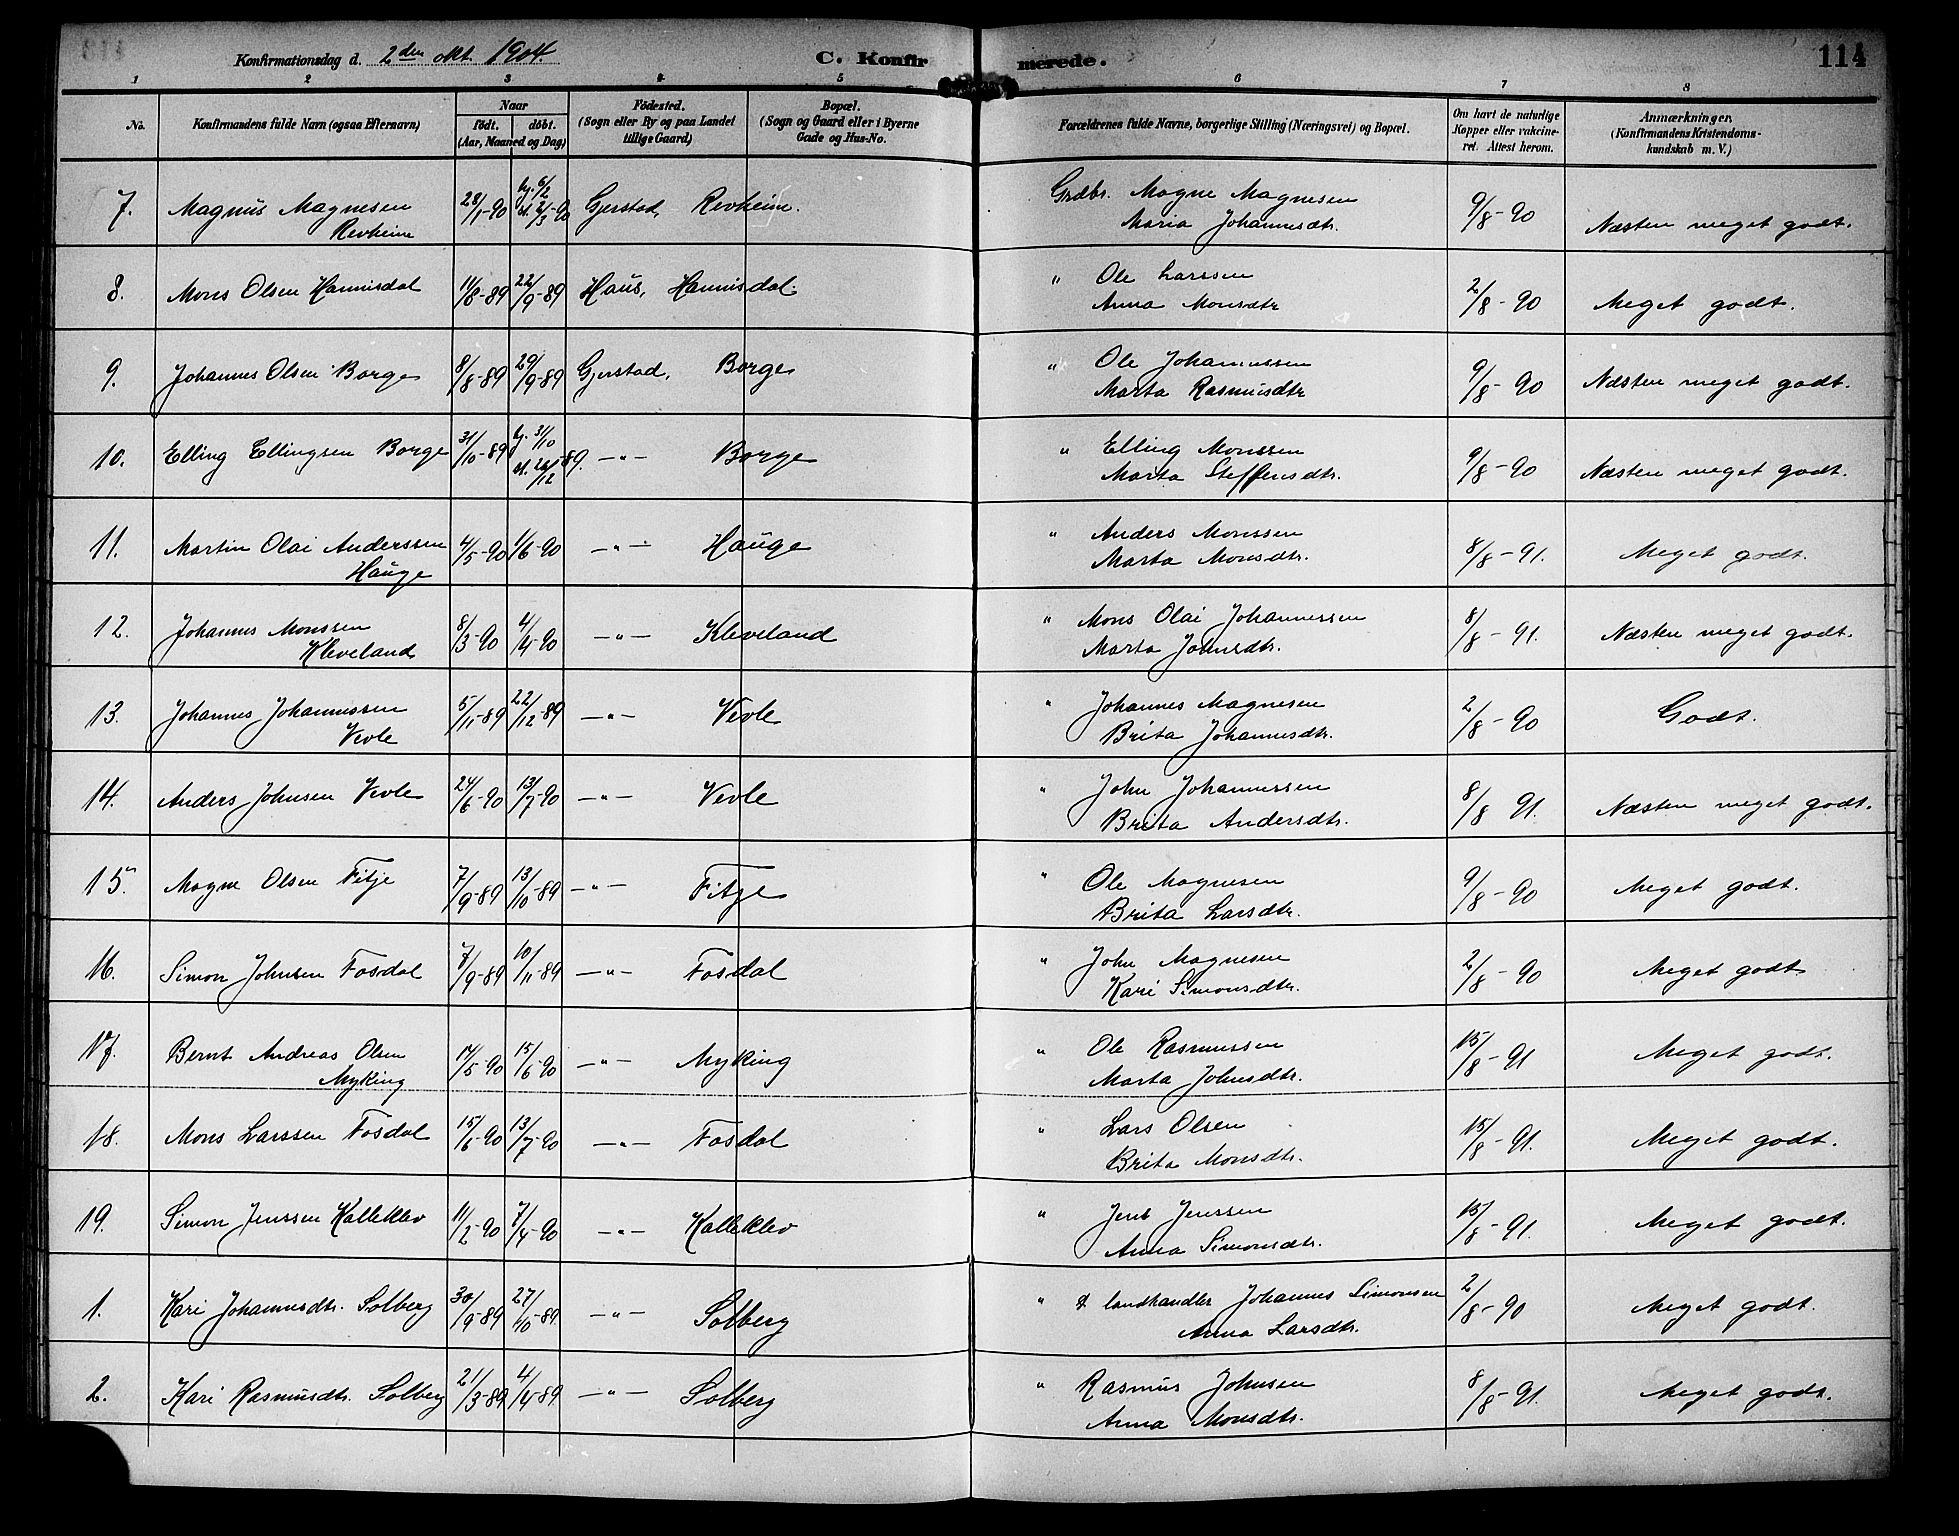 Konfirmationsdag d. 2den okt. 1904.
C. Konfirmerede.
114
1 2 3 4 5 6 7 8
No.
Konfirmandens fulde Navn (ogsaa Efternavn)
Naar
födt. döbt.
(Aar, Maaned og Dag)
Födested.
(Sogn eller By og paa Landet
tillige Gaard)
Bopæl.
(Sogn og Gaard eller i Byerne
Gade og Hus-No.
Forældrenes fulde Navne, borgerlige Stilling (Næringsvei) og Bopæl.
Om havt de naturlige
Kopper eller vakcine-
ret. Attest herom.
Anmærkninger.
(Konfirmandens Kristendoms-
kundskab m. V.)
7. Magnus Magnesen 28/1-90 hj. 6/2 Gjerstad, Revheim. Grdbr. Magne Magnesen 9/8-90 Næsten meget godt.
Revheim st. 2/3-90 Maria Johannesdtr.
8. Mons Olsen Hannisdal 11/8-89 22/9-89 Haus, Hannisdal. " Ole Larssen 2/8-90 Meget godt.
Anna Monsdtr
9. Johannes Olsen Borge 8/8-89 29/9-89 Gjerstad, Borge " Ole Johannessen 9/8-90 Næsten meget godt.
Marta Rasmusdtr
10. Elling Ellingsen Borge 31/10-89 hj. 31/10 -"- Borge " Elling Monssen 9/8-90 Næsten meget godt.
st. 26/12-89. Marta Steffensdtr.
11. Martin Olai Anderssen 4/5-90 1/6-90 -"- Hauge " Anders Monssen 8/8-91. Meget godt.
Hauge Marta Monsdtr.
12. Johannes Monssen 8/3-90 4/4-90 -"- Kleveland " Mons Olai Johannessen 8/8-91. Næsten meget godt.
Kleveland Marta Johnsdtr.
13. Johannes Johannessen 5/11-89 22/12-89 -"- Vevle " Johannes Magnesen 2/8-90 Godt.
Vevle Brita Johannesdtr.
14. Anders Johnsen Vevle 24/6-90 13/7-90 -"- Vevle " John Johannessen 8/8 91. Næsten meget godt.
Brita Andersdtr.
15. Magne Olsen Fitje 7/9-89 13/10-89 -"- Fitje " Ole Magnesen 9/8-90 Meget godt.
Brita Larsdtr.
16. Simon Johnsen Fosdal 7/9-89 10/11-89 -"- Fosdal " John Magnesen 2/8-90 Meget godt
Kari Simonsdtr.
17. Bernt Andreas Olsen 14/5-90 15/6-90 -"- Myking " Ole Rasmussen 15/8-91 Meget godt.
Myking Marta Johnsdtr.
18. Mons Larssen Fosdal 15/6-90 13/7-90 -"- Fosdal " Lars Olsen 15/8-91. Meget godt.
Brita Monsdtr.
19. Simon Jenssen Kalleklev 11/2-90 7/4-90 -"- Kalleklev " Jens Jenssen 15/8-91. Meget godt.
Anna Simonsdtr.
1. Kari Johannesdtr. Solberg 30/9-89 27/10-89 -"- Solberg " & landhandler Johannes Simonsen 2/8-90 Meget godt.
Anna Larsdtr.
2. Kari Rasmusdtr. Solberg 21/3-89 4/4-89 -"- Solberg " Rasmus Johnsen 8/8-91. Meget godt.
Anna Monsdtr.